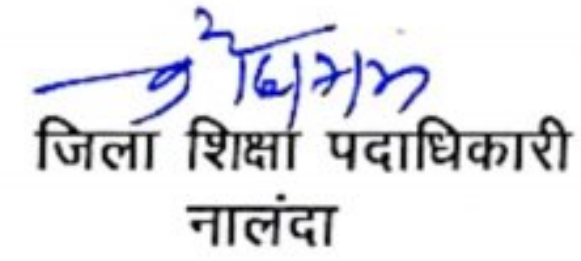 जिला शिक्षा पदाधिकारी
नालंदा